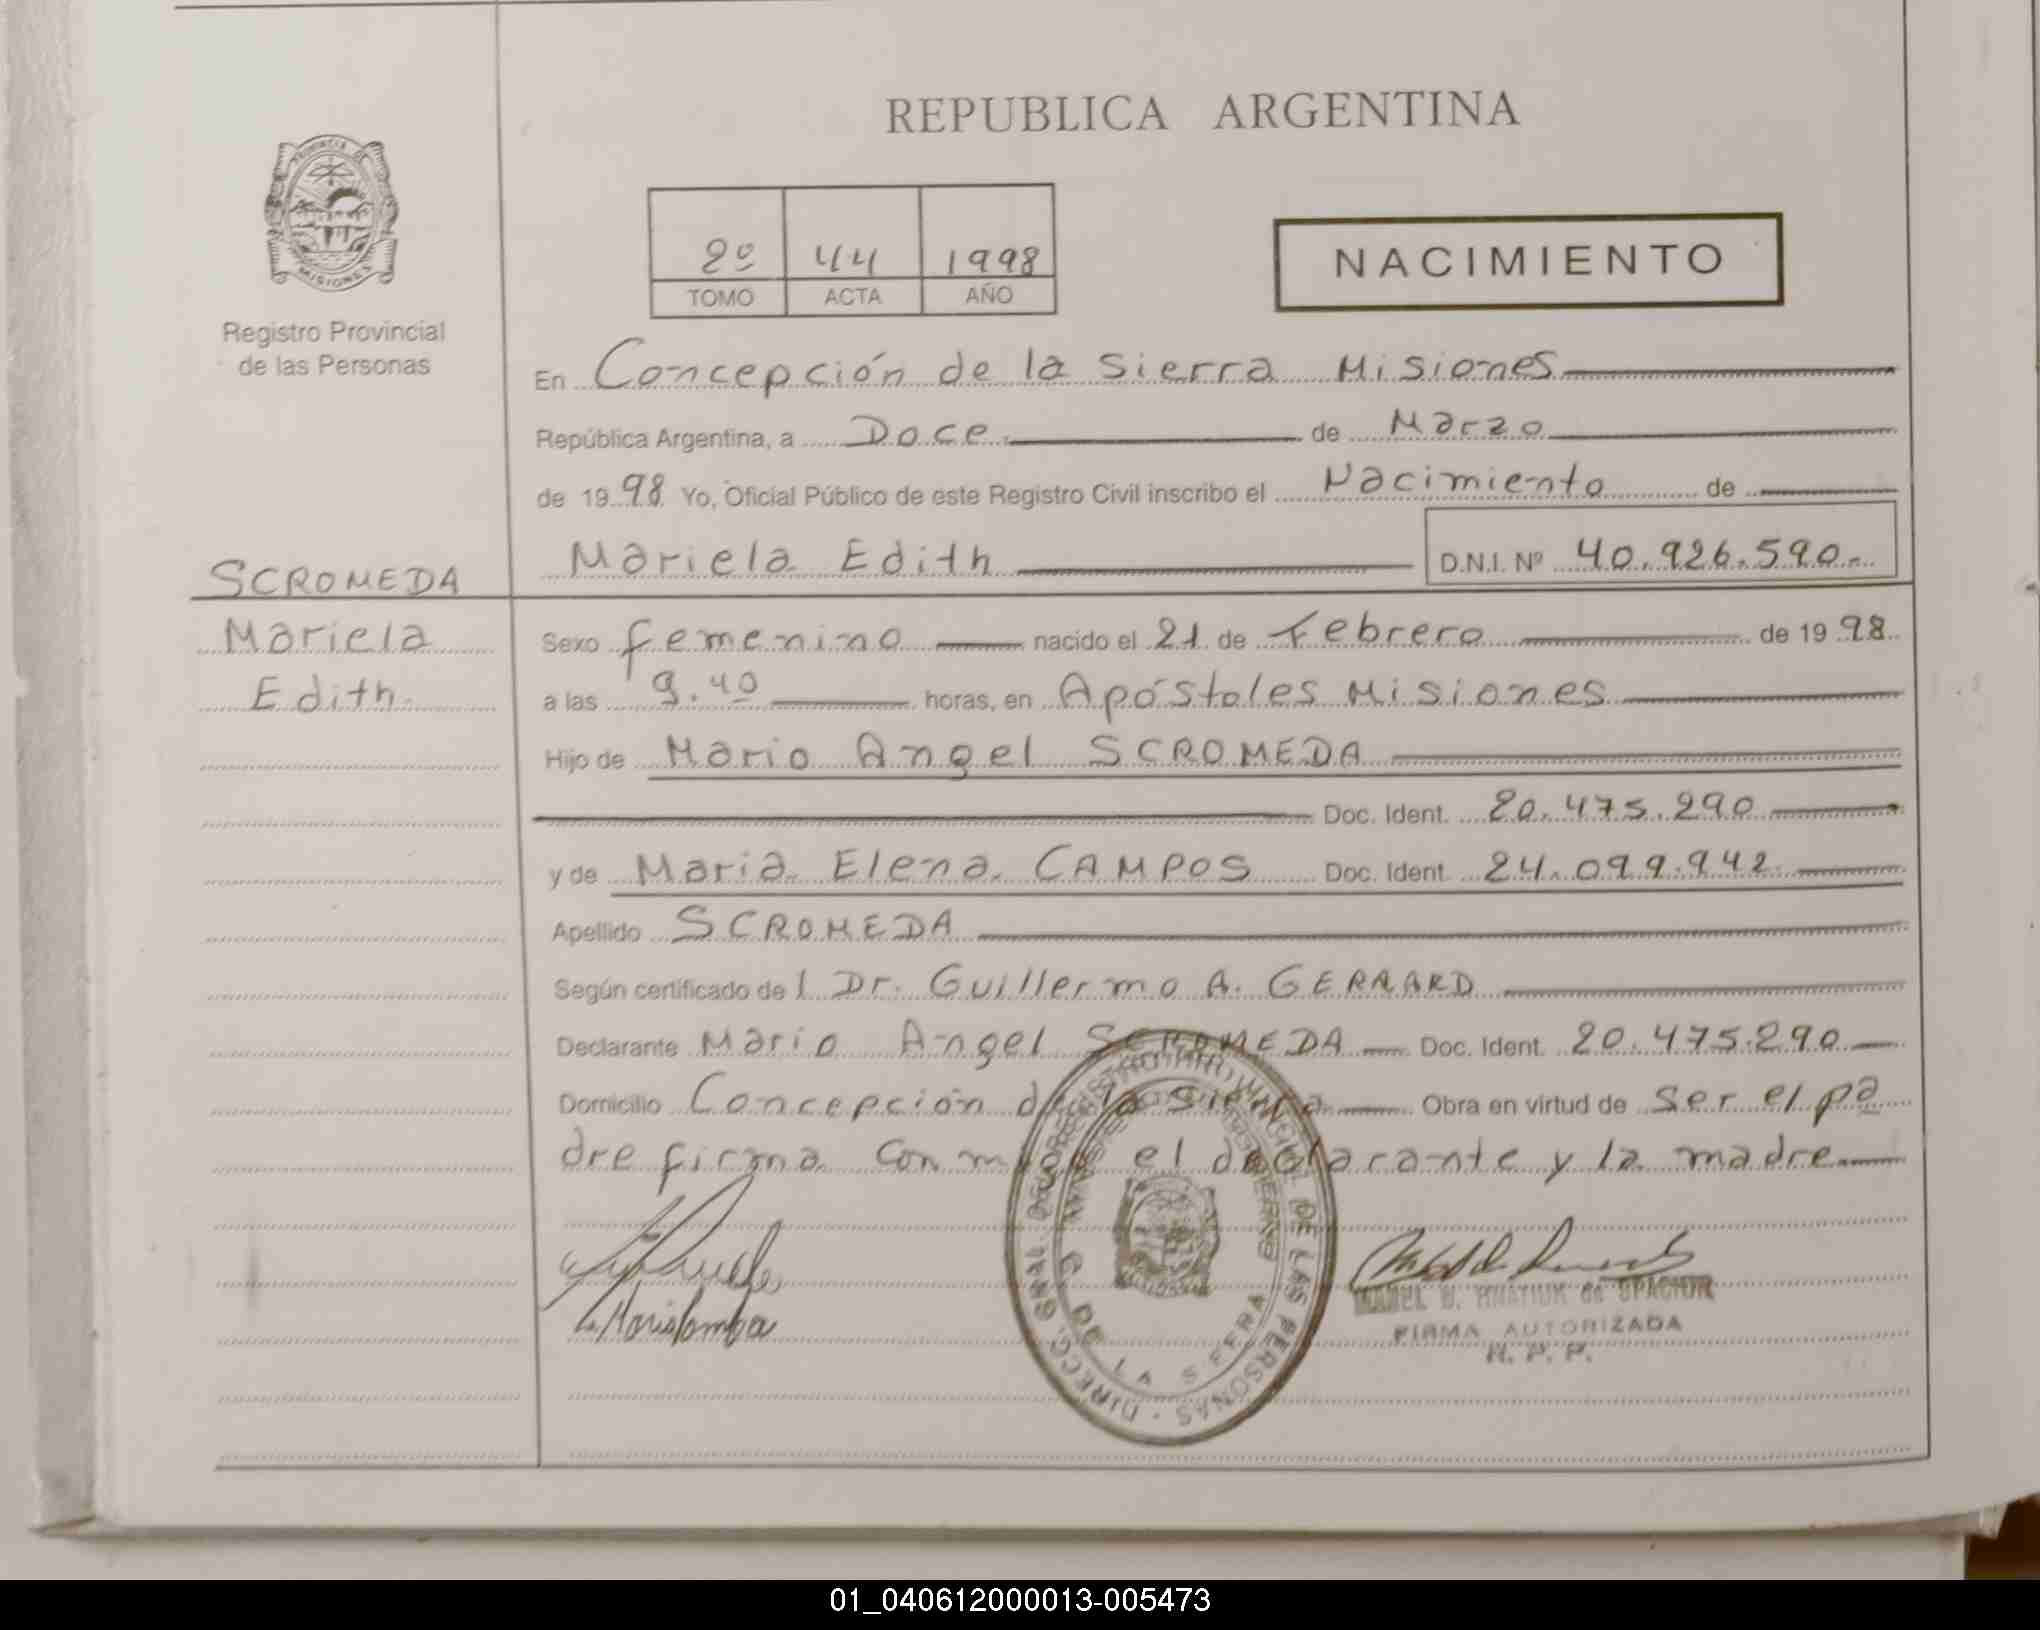 REPUBLICA ARGENTINA
PROVINCIA DE MISIONES
Registro Provincial
de las Personas
2º 44 1998
TOMO ACTA AÑO
NACIMIENTO
En Concepción de la Sierra Misiones
República Argentina, a Doce de Marzo
de 1998 Yo, Oficial Público de este Registro Civil inscribo el Nacimiento de
Mariela Edith D.N.I. Nº 40.926.590.-
SCROMEDA
Mariela
Edith.
Sexo femenino nacido el 21 de Febrero de 1998
a las 9.40 horas, en Apóstoles Misiones
Hijo de Mario Angel SCROMEDA
Doc. Ident. 20.475.290
y de Maria Elena CAMPOS Doc. Ident. 24.099.942
Apellido SCROMEDA
Según certificado del Dr. Guillermo A. GERRARD
Declarante Mario Angel SCROMEDA Doc. Ident. 20.475.290
Domicilio Concepción de la Sierra Obra en virtud de ser el pa
dre firma con el declarante y la madre
DE LAS PERSONAS
DE LA SIERRA
de OPACIUK
FIRMA AUTORIZADA
R. P. P.
01_040612000013-005473